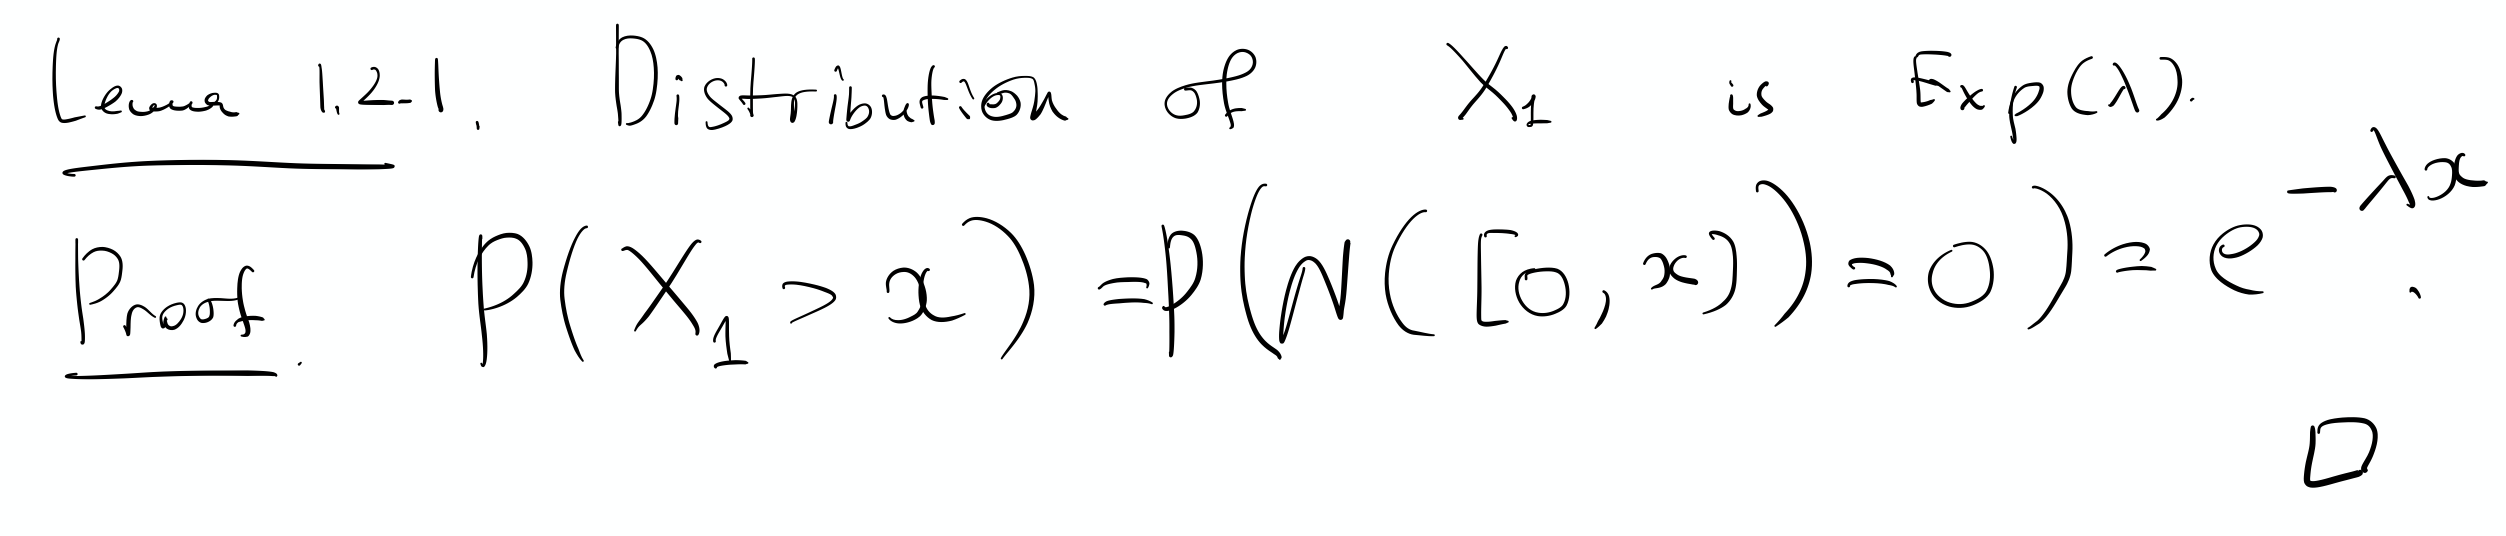 Lemma 1.21. Distribution of X₁ is Exp(λ).
Proof. P(X₁ > x) = P(N([0, x)) = 0) = e^{-λx}.
□